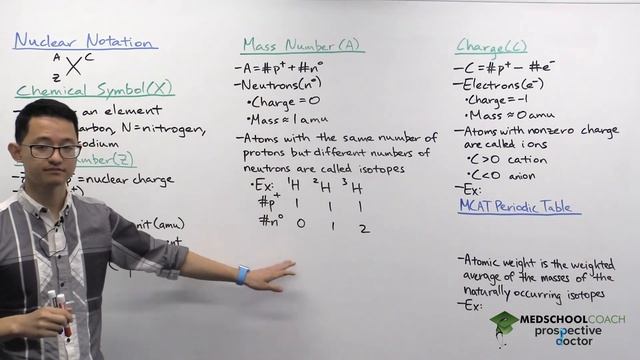 Nuclear Notation
A X C
Z
Chemical Symbol(X)
an element
carbon, N=nitrogen,
sodium
Number(Z)
p⁺=nuclear charge
unit(amu)
Mass Number(A)
-A=#p⁺+#n⁰
-Neutrons(n⁰)
•Charge=0
•Mass≈1 amu
-Atoms with the same number of
protons but different numbers of
neutrons are called isotopes
•Ex: ¹H ²H ³H
#p⁺ 1 1 1
#n⁰ 0 1 2
Charge(C)
-C=#p⁺-#e⁻
-Electrons(e⁻)
•Charge=-1
•Mass≈0 amu
-Atoms with nonzero charge
are called ions
•C>0 cation
•C<0 anion
-Ex:
MCAT Periodic Table
-Atomic weight is the weighted
average of the masses of the
naturally occurring isotopes
-Ex:
MEDSCHOOLCOACH
prospective
doctor